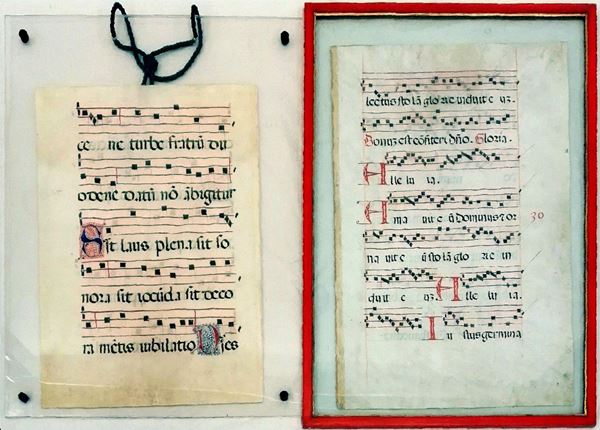 ce ne turbe fratrū du
odene datū nō ābigitur
Sit laus plena sit so
nora sit iocūda sit deco
ra mētis iubilatio Dies
lectus sto lā glo rie induit e uz.
Bonuz est cōfiteri dño. Gloria.
Alle lu ia.
Ama uit e ū dominus t or 30
na uit e ū sto lā glo rie in
duit e uz. Alle lu ia.
Iu stus germina